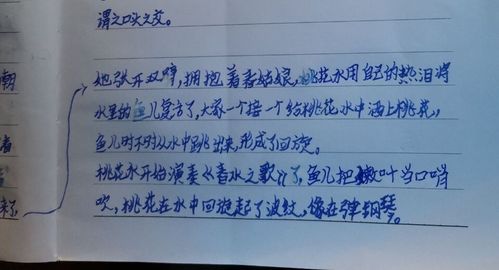 谓之口头之交。
她张开双臂,拥抱着春姑娘,桃花水用自己的热泪将
水里的鱼儿完了,大家一个接一个给桃花水中洒上桃花,
鱼儿时不时从水中跳出来,形成了回旋。
桃花水开始演奏《春水之歌》了,鱼儿把嫩叶当口哨
吹,桃花在水中回旋起了波纹,像在弹钢琴。
朝
者
来了